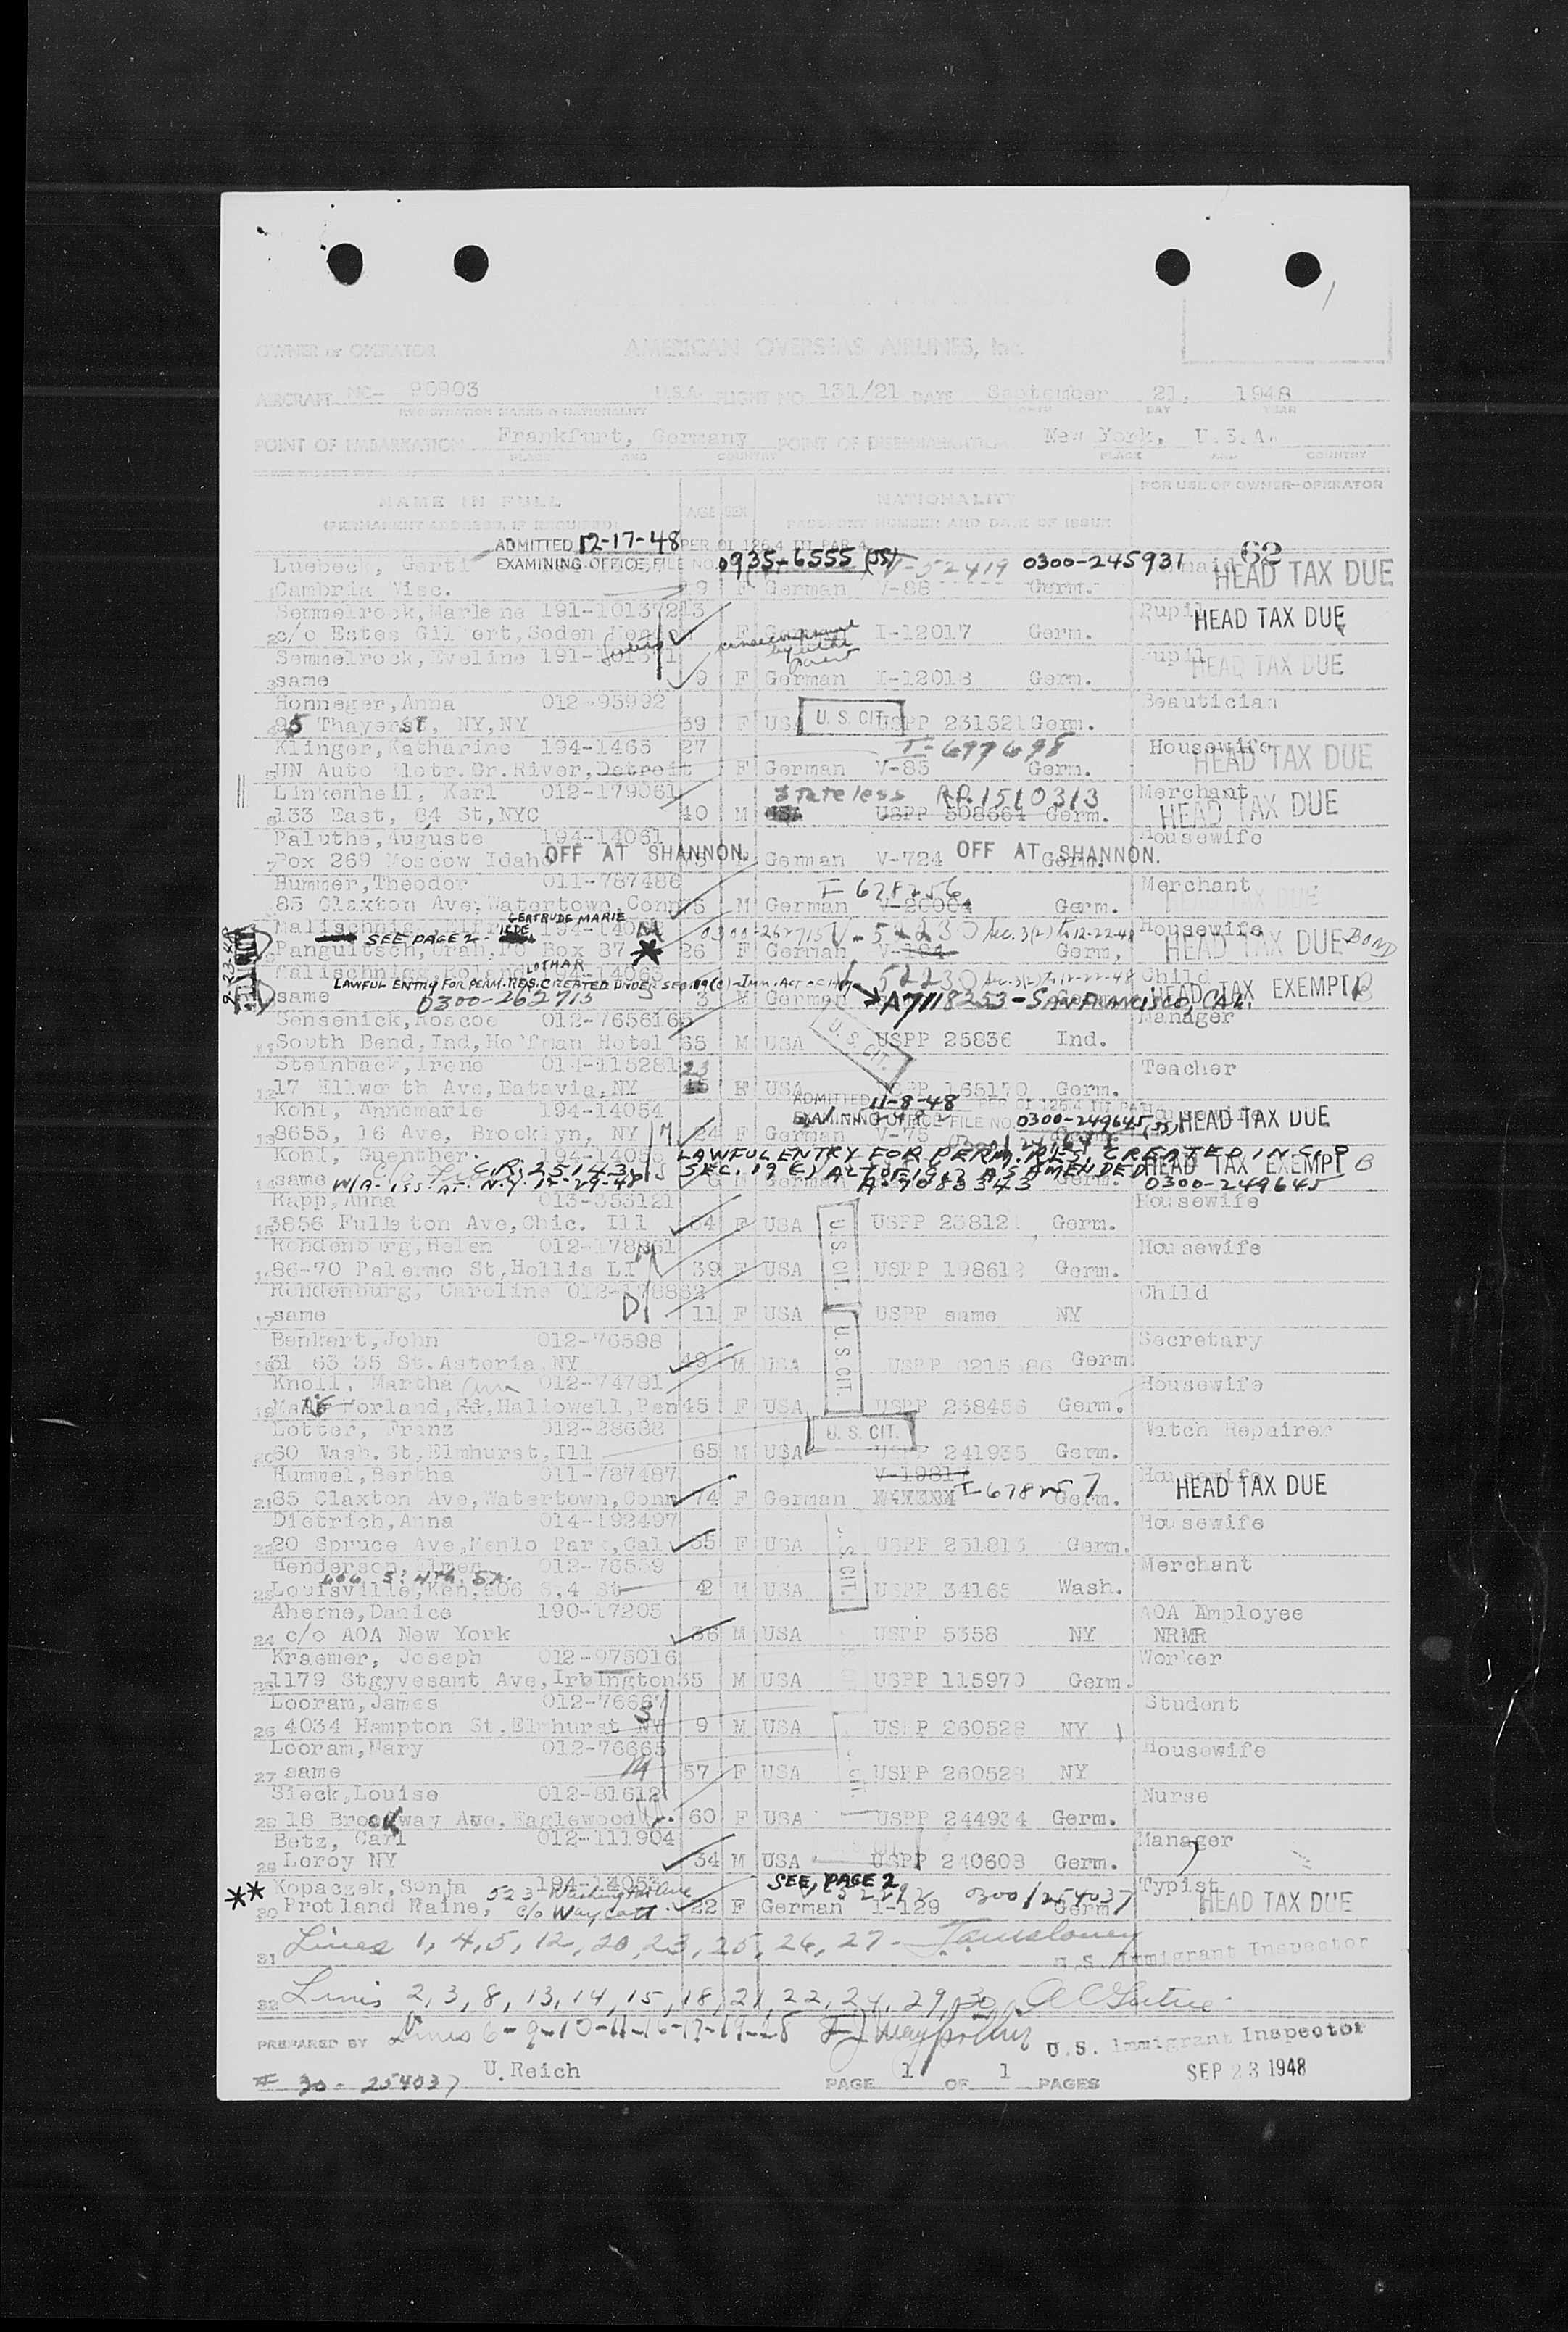 OWNER or OPERATOR AMERICAN OVERSEAS AIRLINES, Inc.
AIRCRAFT NC- 90903 U.S.A. FLIGHT NO. 131/21 DATE September 21, 1948
REGISTRATION MARKS & NATIONALITY MONTH DAY YEAR
POINT OF EMBARKATION Frankfurt, Germany POINT OF DISEMBARKATION New York, U.S.A.
PLACE AND COUNTRY PLACE AND COUNTRY
NAME IN FULL AGE SEX NATIONALITY FOR USE OF OWNER-OPERATOR
(PERMANENT ADDRESS, IF REQUIRED) PASSPORT NUMBER AND DATE OF ISSUE
ADMITTED 12-17-48 PER OI 126.4 III PAR 4
EXAMINING OFFICE FILE NO. 0935-6555 (JS) V-52419 0300-245931 62
Luebeck, HEAD TAX DUE
1 Cambria Wisc. F German V-88 Germ.
Semmelrock, Marlene 191-101372 13 Pupil HEAD TAX DUE
2 c/o Estes Gilbert, Soden F German I-12017 Germ.
Semmelrock, Eveline Pupil HEAD TAX DUE
3 same 9 F German I-12018 Germ.
Honneger, Anna 012-93992 Beautician
4 85 Thayer ST, NY, NY 39 F USA U. S. CIT. USPP 231521 Germ.
Klinger, Katharine 194-1465 27 I-677698 Housewife HEAD TAX DUE
5 UN Auto Elctr. Gr. River, Detroit F German V-85 Germ.
Linkenheil, Karl 012-179061 Stateless R.P. 1510313 Merchant HEAD TAX DUE
6 133 East, 84 St, NYC 40 M USPP 508664 Germ.
Paluthe, Auguste 194-14061 Housewife
7 Box 269 Moscow Idaho OFF AT SHANNON. German V-724 Germ. OFF AT SHANNON.
Hummer, Theodor 011-787486 I-678256 Merchant HEAD TAX DUE
8 85 Claxton Ave, Watertown, Conn 75 M German Germ.
GERTRUDE MARIE
Malischnig, M 0300-262715 V-52230 Sec. 3(2) to 12-22-48 Housewife HEAD TAX DUE BOND
SEE PAGE 2
9 Panguitsch, Utah, PO Box 87 * 26 F German V-104 Germ.
LOTHAR
Malischnig, Roland 194-14063 V-52230 Sec. 3(2) to 12-22-48 Child HEAD TAX EXEMPT B
LAWFUL ENTRY FOR PERM. RES. CREATED UNDER SEC. 19(c) - IMM. ACT OF 1917
same 0300-262715 3 M German A7118253 - SAN FRANCISCO, CAL.
Sensenick, Roscoe 012-7656165 Manager
11 South Bend, Ind, Hoffman Hotel 65 M USA U. S. CIT. USPP 25836 Ind.
Steinback, Irene 014-115281 23 Teacher
12 17 Ellworth Ave, Batavia, NY F USA USPP 165170 Germ.
ADMITTED 11-8-48 PER OI 126.4 III PAR
Kohl, Annemarie 194-14054 EXAMINING OFFICE FILE NO. 0300-249645 (JS) HEAD TAX DUE
13 8655, 16 Ave, Brooklyn, NY M 24 F German V-75
Kohl, Guenther. 194-14055 LAWFUL ENTRY FOR PERM. RES. CREATED IN
C.R. 25143 S SEC. 19 (c) ACT OF 1917 AS AMENDED HEAD TAX EXEMPT B
14 same W/A. ISS. AT. N.Y. 12-29-48 M German A-7083343 Germ. 0300-249645
Rapp, Anna 013-553121 Housewife
15 3856 Fullerton Ave, Chic. Ill 64 F USA U. S. CIT. USPP 23812 Germ.
Rohdenburg, Helen 012-178861 M Housewife
16 86-70 Palermo St, Hollis LI 39 F USA USPP 198612 Germ.
Rohdenburg, Caroline 012-178862 Child
17 same D 11 F USA USPP same NY
Benkert, John 012-76598 Secretary
18 31 63 35 St. Astoria NY 49 M USA U. S. CIT. Germ.
Knoll, Martha 012-74781 Housewife
19 Horland, Rd, Hallowell, Pen 45 F USA USPP 238456 Germ.
Lotter, Franz 012-28688 Watch Repairer
20 60 Wash. St, Elmhurst, Ill 65 M USA U. S. CIT. USPP 241935 Germ.
Hummel, Bertha 011-787487 V-1981 Housewife HEAD TAX DUE
21 85 Claxton Ave, Watertown, Conn 74 F German I-678257 Germ.
Dietrich, Anna 014-192497 Housewife
22 20 Spruce Ave, Menlo Park, Cal 65 F USA U. S. CIT. USPP 251813 Germ.
Henderson, Elmer 012-76559 Merchant
606 S. 4th. St.
23 Louisville, Ken, 606 S, 4 St 42 M USA USPP 34165 Wash.
Aherne, Danice 190-17205 AOA Employee
24 c/o AOA New York 36 M USA USPP 5358 NY NRMR
Kraemer, Joseph 012-975016 Worker
25 1179 Stgyvesamt Ave, Irvington 35 M USA USPP 115970 Germ.
Looram, James 012-76667 Student
26 4034 Hampton St, Elmhurst NY S 9 M USA USPP 260528 NY
Looram, Mary 012-76665 Housewife
27 same M 57 F USA USPP 260528 NY
Sieck, Louise 012-81612 Nurse
28 18 Brockway Ave, Eaglewood 60 F USA USPP 244934 Germ.
Betz, Carl 012-111904 Manager
29 Leroy NY 34 M USA USPP 240603 Germ.
Kopaczek, Sonja 194-14053 SEE, PAGE 2 Typist
** 523 Washington Ave 0300/254037 HEAD TAX DUE
30 Protland Maine, c/o Waycott 22 F German I-129 Germ.
31 Lines 1, 4, 5, 12, 20, 23, 25, 26, 27 - U.S. Immigrant Inspector
32 Lines 2, 3, 8, 13, 14, 15, 18, 21, 22, 24, 29, 30,
PREPARED BY Lines 6-9-10-11-16-17-19-28 U.S. Immigrant Inspector
# 30 - 254037 U. Reich PAGE 1 OF 1 PAGES SEP 23 1948